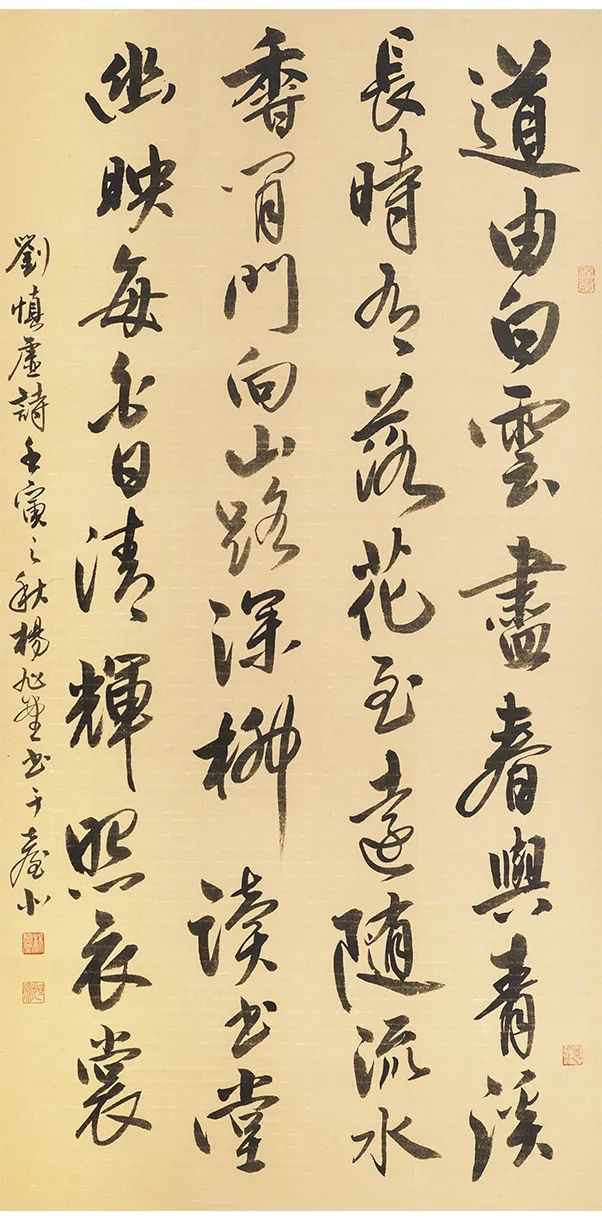 道由白雲盡春與青溪
長時有落花至遠隨流水
香閒門向山路深柳讀書堂
幽映每白日清輝照衣裳
劉慎虛詩壬寅之秋楊旭堂書于臺北